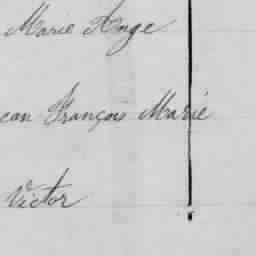 Marie Ange
ean François Marie
Victor